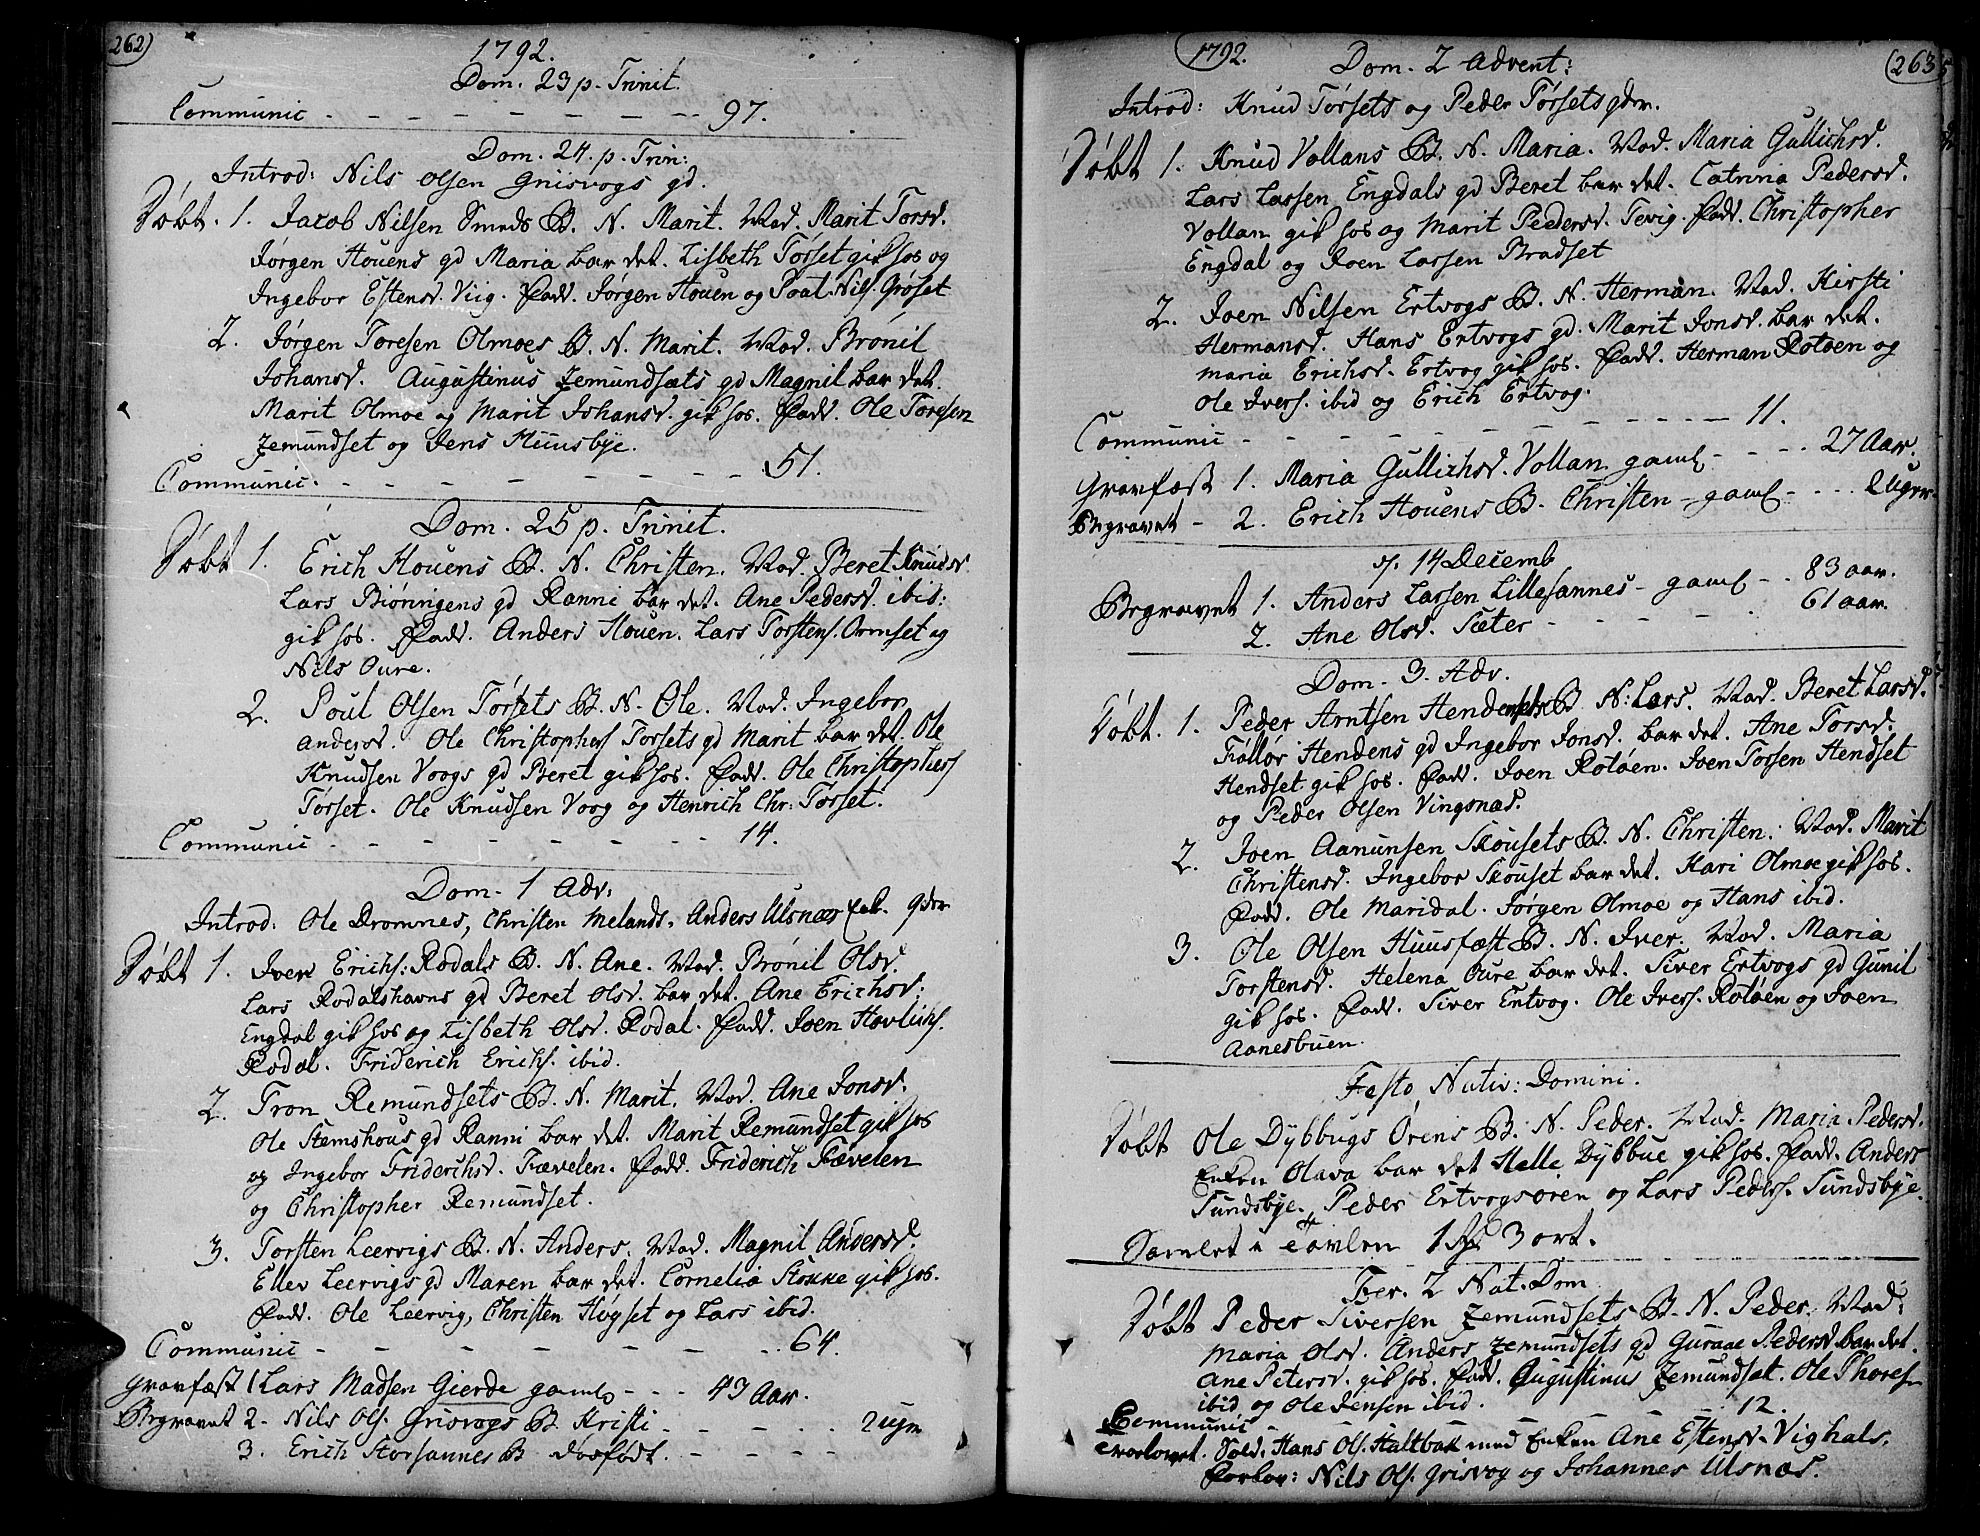 262)
1792.
Dom. 23 p. Trinit.
Communic - - - - - - - - 97.
Dom. 24. p. Trin:
Introd: Nils Olsen Griisvogs gd.
Døbt. 1. Jacob Nilsen Smeds B. N. Marit. Mod. Marit Torsd.
Jørgen Houens gd Maria bar det. Lisbeth Torset gik hos og
Ingebor Estensd. Viig. Fadd. Jørgen Houen og Poul Nils. Grøset
2. Jørgen Toresen Olmoes B. N. Marit. Mod. Brønil
Johansd. Augustinus Zemundsæts gd Magnil bar det.
Marit Olmoe og Marit Johansd. gik hos. Fadd. Ole Toresen
Zemundset og Jens Muusbye.
Communic. - - - - - - - - 51.
Dom. 25 p. Trinit.
Døbt 1. Erich Houens B. N. Christen. Mod. Beret Knudsd.
Lars Biørnigens gd Ranni bar det. Ane Pedersd. ibid:
gik hos. Fadd. Anders Houen. Lars Torstens. Ormset og
Nils Oure.
2. Poul Olsen Tørsets B. N. Ole. Mod. Ingebor
Andersd. Ole Christophers Torsets gd Marit bar det. Ole
Knudsen Voogs gd Beret gik hos. Fadd. Ole Christophers
Tørset. Ole Knudsen Voog og Henrich Chr: Torset.
Communic - - - - - - - - 14.
Dom. 1 Adv:
Introd: Ole Dromnes, Christen Melands, Anders Ulsnæs gdr
Døbt 1. Iver Erichs: Rodals B. N. Ane. Mod. Brønil Olsd.
Lars Rodalshavns gd Beret Olsd. bar det. Ane Erichsd:
Engdal gik hos og Lisbeth Olsd. Rodal. Fadd. Joen Havlichs.
Rodal. Friderich Erichs. ibid.
2. Tron Remundsets B. N. Marit. Mod. Ane Jonsd.
Ole Stemshous gd Ranni bar det. Marit Remundset gik hos
og Ingebor Friderichsd. Fævelen. Fadd. Friderich Fævelen
og Christopher Remundset.
3. Torsten Leervigs B. N. Anders. Mod. Magnil Andersd.
Ellev Leervigs gd Maren bar det. Cornelia Stokke gik hos.
Fadd. Ole Leervig, Christen Høgset og Lars ibid.
Communic - - - - - - - - 64.
Gravfæst 1 Lars Madsen Gierde gaml - - - 43 Aar.
Begravet 2 - Nils Ols. Grisvogs B. Kristi - - - - 2 ugr
3. Erich Storsannes B dødfødt. - - - -
1792.
263
Dom. 2 Advent:
Introd: Knud Tørsets og Peder Tørsets gdr.
Døbt 1. Knud Vollans B. N. Maria. Mod. Maria Gullichsd.
Lars Larsen Engdals gd Beret bar det. Catrina Pedersd.
Vollan gik hos og Marit Pedersd. Tevig. Fadd. Christopher
Engdal og Joen Larsen Bradset
2. Joen Nilsen Ertvogs B. N. Herman. Mod. Kirsti
Hermansd. Hans Ertvogs gd. Marit Jonsd. bar det.
Maria Erichsd. Ertvog gik hos. Fadd. Herman Rotøen og
Ole Ivers. ibid og Erich Ertvog.
Communic - - - - - - - - 11.
Gravfæst 1. Maria Gullichsd. Vollan gaml - - - - 27 Aar.
Begravet - 2. Erich Houens B. Christen - gaml - - - 2 Uger.
d. 14 Decemb
Begravet 1. Anders Larsen Lillesannes - gaml - - 83 aar.
2. Ane Olsd. Sæter - - - - - 61 aar.
Dom. 3. Adv.
Døbt. 1. Peder Arntsen Hendensets B N: Lars. Mod. Beret Larsd.
Hendens gd Ingebor Jonsd. bar det. Ane Torsd.
Hendset gik hos. Fadd. Joen Rotøen. Joen Torsen Hendset
og Peder Olsen Vingsnæs.
2. Joen Aanunsen Skousets B. N. Christen. Mod. Marit
Christensd. Ingebor Skouset bar det. Kari Olmoe gik hos.
Fadd. Ole Maridal. Jørgen Olmoe og Hans ibid.
3. Ole Olsen Huusfæst B. N. Iver. Mod. Maria
Torstensd. Helena Oure bar det. Siver Ertvogs gd Gunil
gik hos. Fadd. Siver Ertvog. Ole Ivers. Rotøen og Joen
Aanesbuen.
Festo Nativ: Domini.
Døbt Ole Dybbugs Ørens B. N. Peder. Mod. Maria Pedersd.
Enken Olava bar det Helle Dybbue gik hos. Fadd. Anders
Sundsbye. Peder Ertvogsøren og Lars Peders. Sundsbye.
Samlet i Tavlen 1 Rd 3 ort.
Fer. 2 Nat. Dom
Døbt Peder Siversen Zemundsets B. N. Peder. Mod:
Maria Olsd. Anders Zemundsets gd Guraae Pedersd bar det.
Ane Petersd. gik hos. Fadd. Augustinus Zemundset. Ole Thores
ibid og Ole Jensen ibid.
Communic - 12.
Trolovet. Sold. Hans Ols. Haltbak med Enken Ane Estensd. Vighals.
Forlov: Nils Ols. Grisvog og Johannes Ulsnæs.